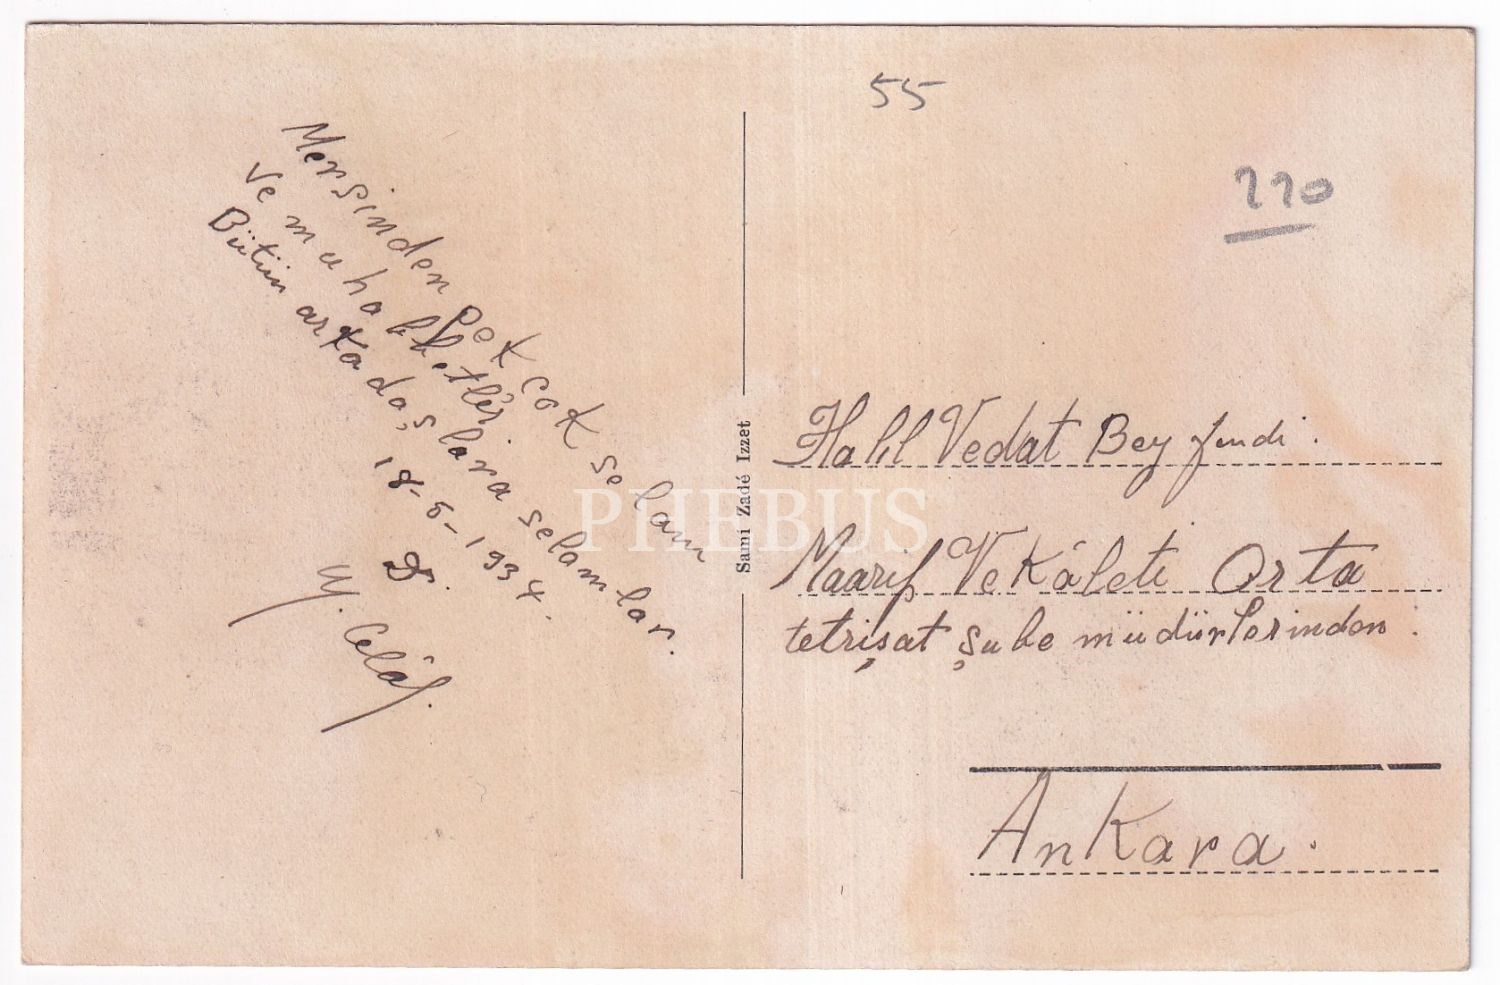 55
220
Mersinden pek çok selam
ve muhabbetler.
Bütün arkadaşlara selamlar.
18-6-1934.
D.
M. Celâl.
Sami Zadé Izzet
PHEBUS
Halil Vedat Bey fendi.
Maarif Vekâleti Orta
tetrişat şube müdürlerinden.
Ankara.